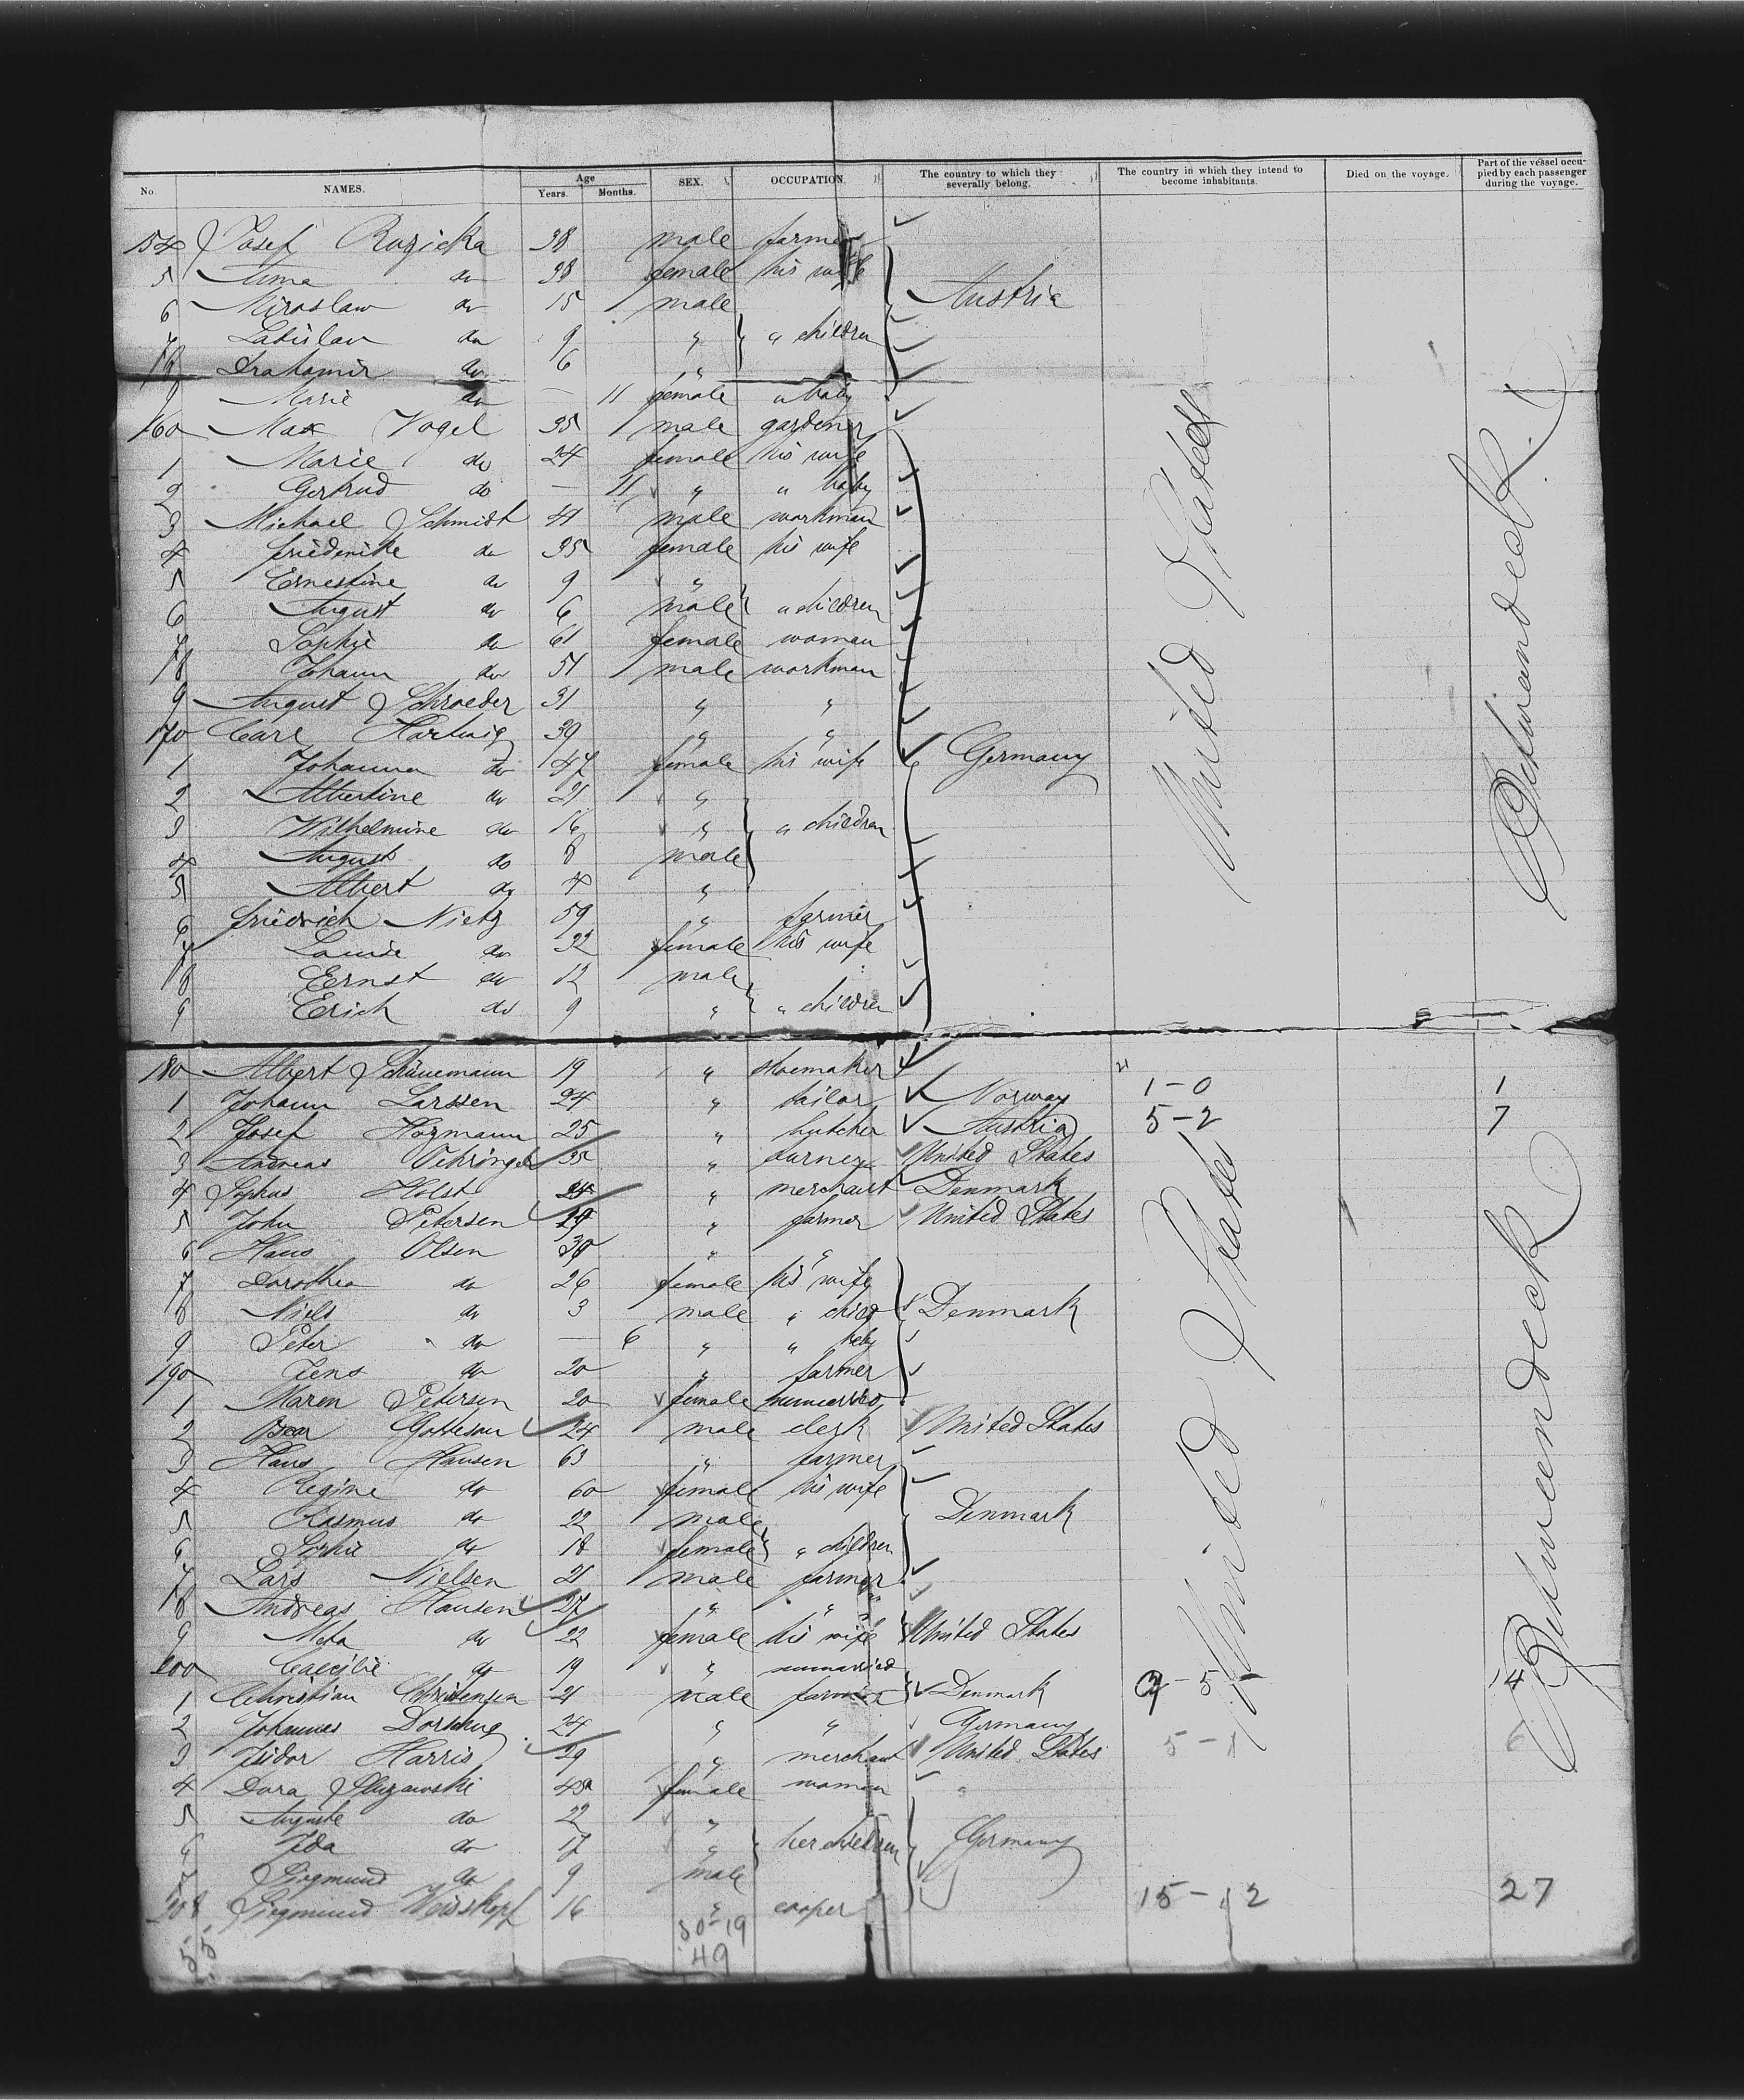 No. NAMES. Age Years. Months. SEX. OCCUPATION. The country to which they severally belong. The country in which they intend to become inhabitants. Died on the voyage. Part of the vessel occupied by each passenger during the voyage.
154 Josef Ruzicka 38 male farmer
5 Anna do 38 female his wife
6 Miroslaw do 15 male Austria
7 Ladislav do 9 " " children
8 Drahomir do 6 "
9 Marie do — 11 female " baby
160 Max Vogel 35 male gardener
1 Marie do 24 female his wife
2 Gertrud do — 11 " " baby
3 Michael Schmidt 41 male workman
4 Friederike do 35 female his wife
5 Ernestine do 9 "
6 August do 6 male " children
7 Sophie do 61 female woman
8 Johann do 51 male workman
9 August Schroeder 31 " "
170 Carl Hartwig 39 " "
1 Johanna do 47 female his wife Germany
2 Albertine do 21 "
3 Wilhelmine do 16 " " children
4 August do 8 male
5 Albert do 4 "
6 Friedrich Nietz 59 " farmer
7 Louise do 32 female his wife
8 Ernst do 12 male
9 Erich do 9 " " children
United States
Betweendeck
180 Albert Schünemann 19 " shoemaker
1 Johann Larssen 24 " tailor Norway 1-0 1
2 Josef Hozmann 25 " butcher Austria 5-2 7
3 Andreas 35 " turner United States
4 Sophus Holst 24 " merchant Denmark
5 John Petersen 29 " farmer United States
6 Hans Olsen 30 " "
7 Dorothea do 26 female his wife
8 Niels do 3 male " child Denmark
9 Peter do — 6 " " baby
190 Jens do 20 " farmer
1 Maren Petersen 20 female unmarried
2 Oscar 24 male clerk United States
3 Hans Hansen 63 " farmer
4 Regine do 60 female his wife
5 Rasmus do 22 male Denmark
6 Sophie do 18 female " children
7 Lars Nielsen 21 male farmer
8 Andreas Hansen 27 " "
9 Meta do 22 female his wife United States
200 Caecilie do 19 " unmarried
1 Christian Christensen 21 male farmer Denmark 9-5 14
2 Johannes 24 " " Germany
3 Isidor Harris 29 " merchant United States 5-1 6
4 Dora 45 female woman
5 Auguste do 22 "
6 Ida do 17 " her children Germany
7 Siegmund do 9 male
208 Siegmund Weisskopf 16 " cooper 15-12 27
United States
Betweendeck
55
30-19
49